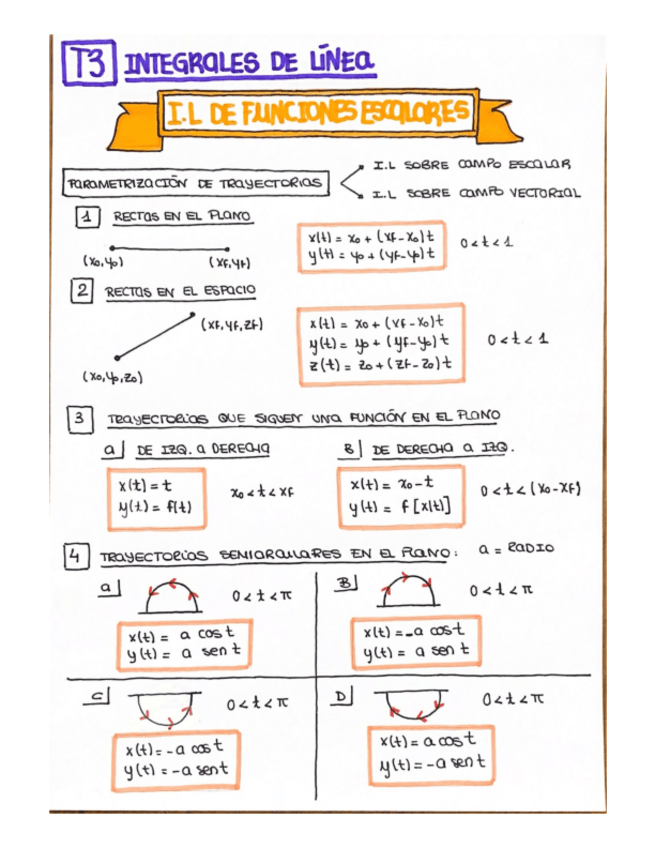 T3 INTEGRALES DE LÍNEA
I.L DE FUNCIONES ESCALARES
PARAMETRIZACIÓN DE TRAYECTORIAS
I.L SOBRE CAMPO ESCALAR
I.L SOBRE CAMPO VECTORIAL
1 RECTAS EN EL PLANO
(x₀,y₀) (xF,yF)
x(t) = x₀ + (xF-x₀)t
y(t) = y₀ + (yF-y₀)t
0<t<1
2 RECTAS EN EL ESPACIO
(xF,yF,zF)
(x₀,y₀,z₀)
x(t) = x₀ + (xF-x₀)t
y(t) = y₀ + (yF-y₀)t
z(t) = z₀ + (zF-z₀)t
0<t<1
3 TRAYECTORIAS QUE SIGUEN UNA FUNCIÓN EN EL PLANO
a) DE IZQ. A DERECHA
x(t) = t
y(t) = f(t)
x₀<t<xF
B) DE DERECHA A IZQ.
x(t) = x₀-t
y(t) = f[x(t)]
0<t<(x₀-xF)
4 TRAYECTORIAS SEMICIRCULARES EN EL PLANO: a = RADIO
a) 0<t<π
x(t) = a cost
y(t) = a sent
B) 0<t<π
x(t) = -a cost
y(t) = a sent
C) 0<t<π
x(t) = -a cost
y(t) = -a sent
D) 0<t<π
x(t) = a cost
y(t) = -a sent